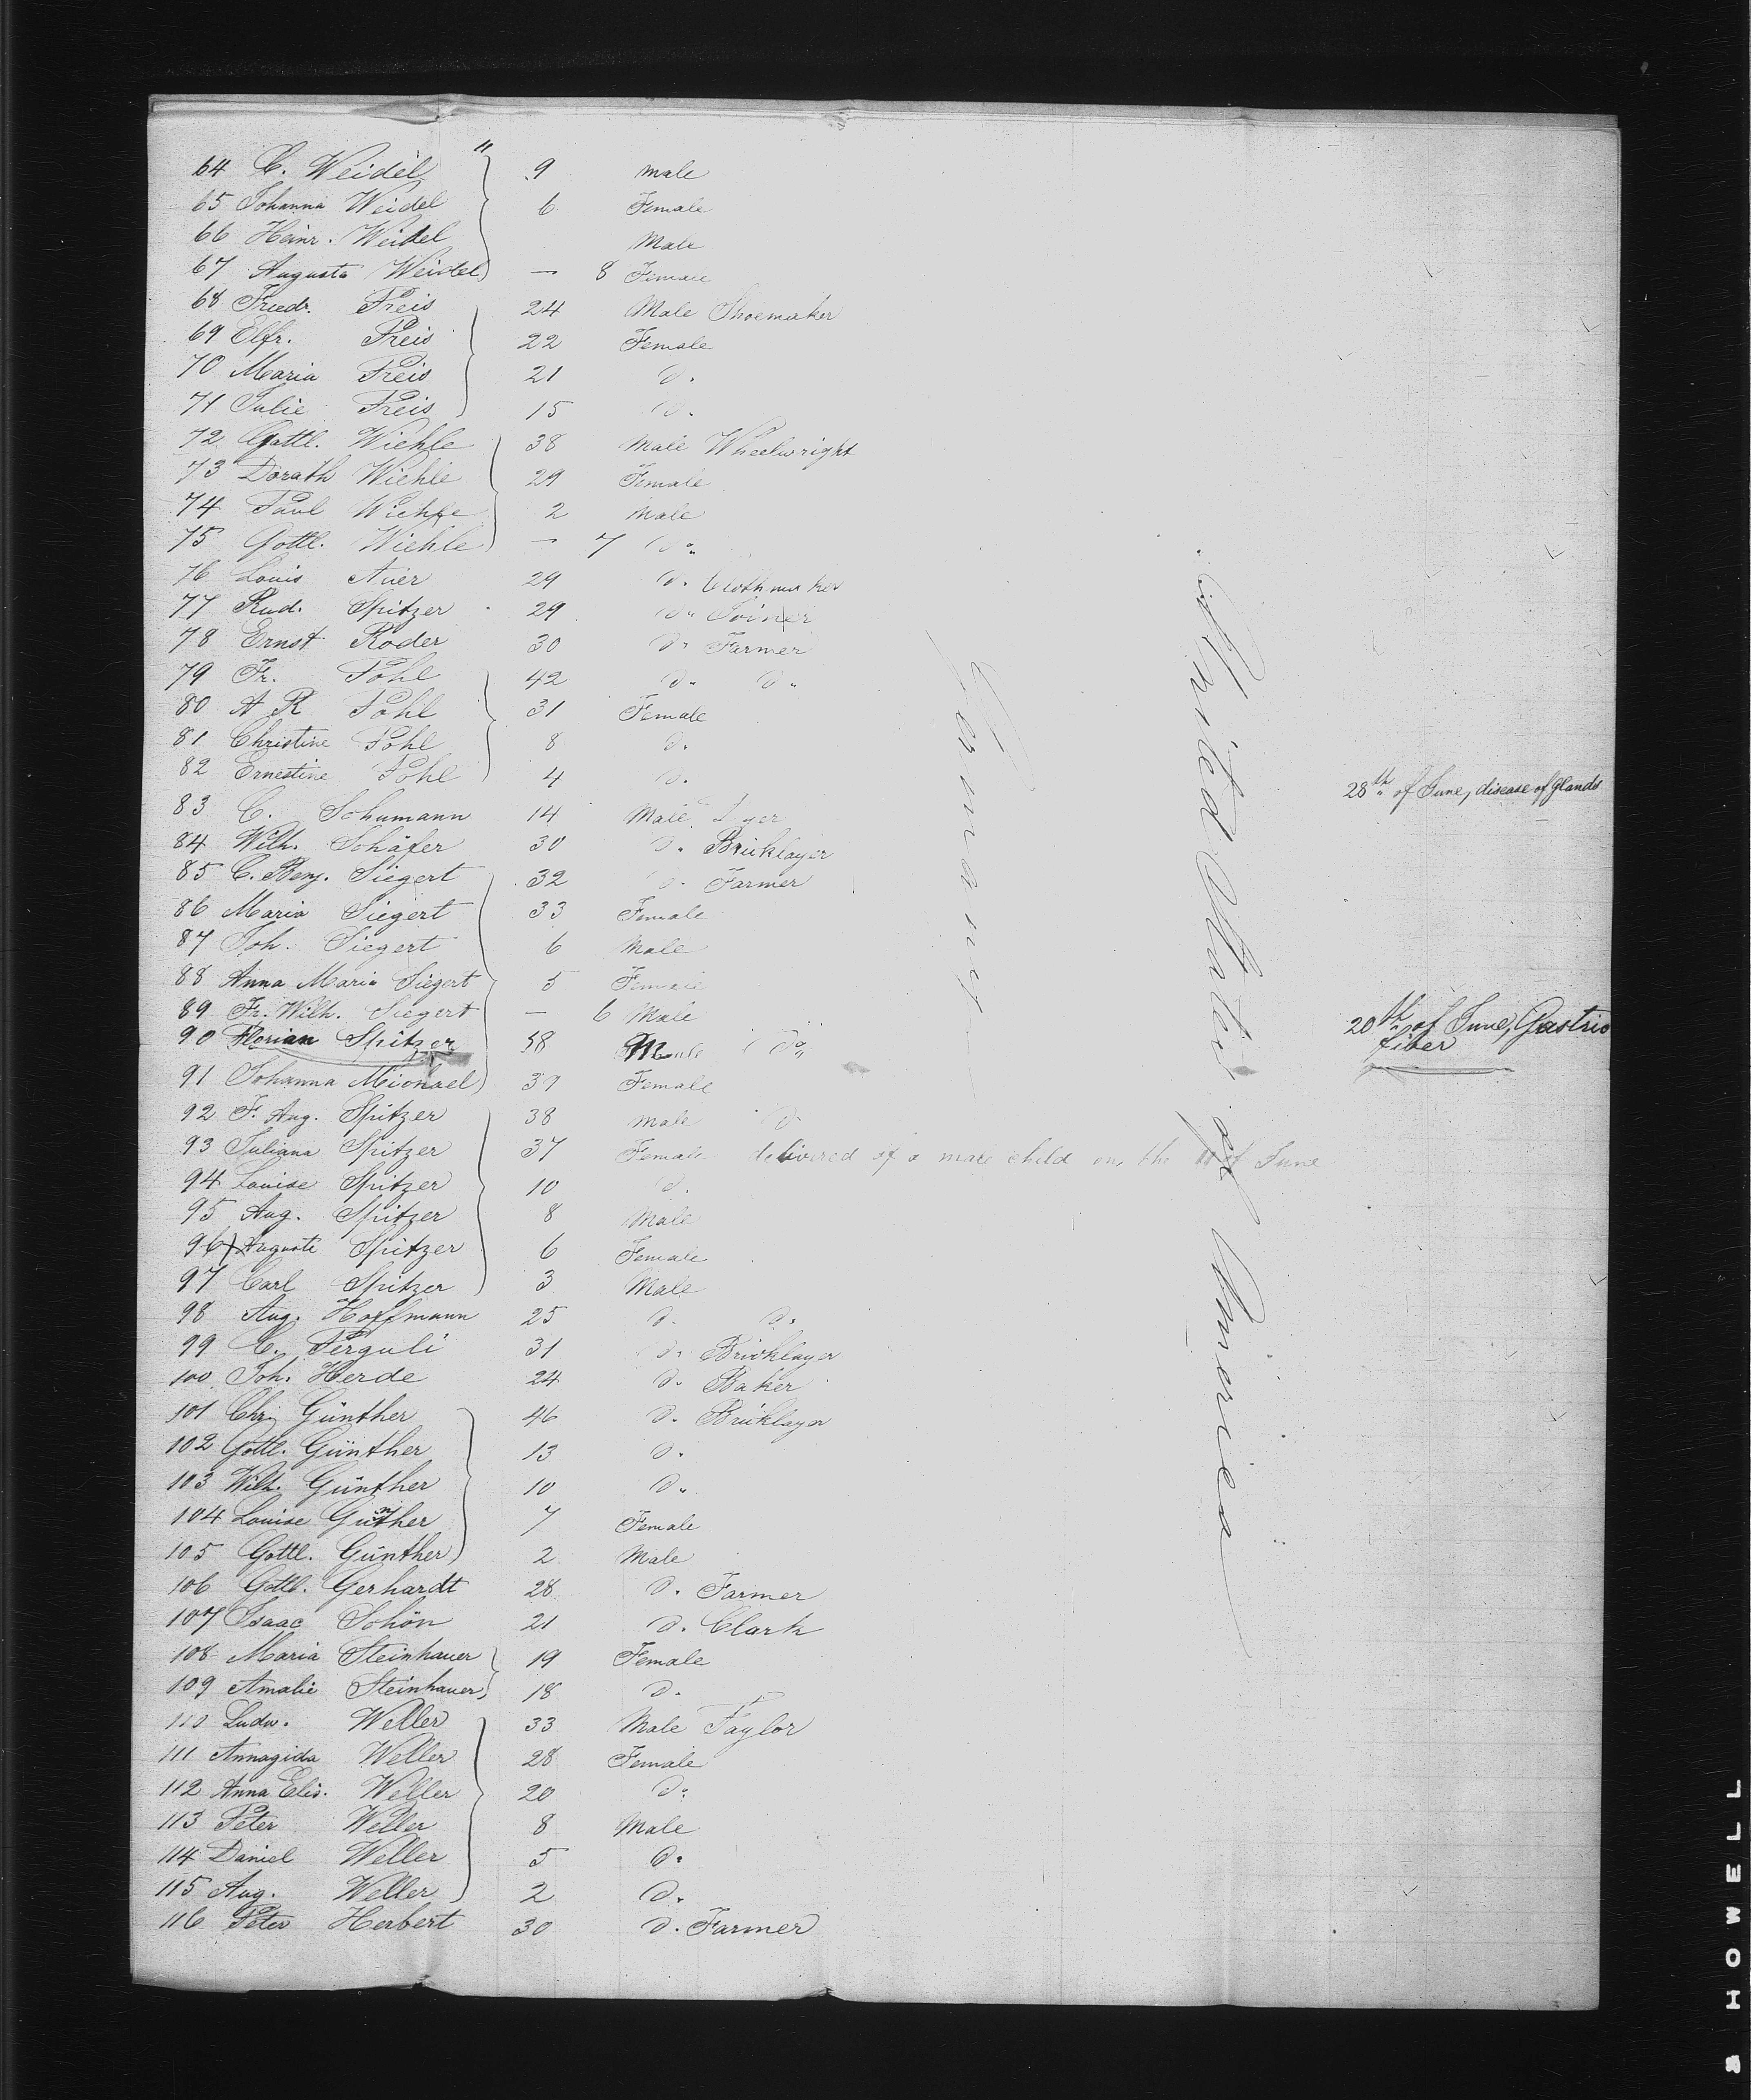 "
64 C. Weidel 9 male
65 Johanna Weidel 6 Female
66 Heinr. Weidel Male
67 Augusta Weidel — 8 Female
68 Friedr. Preis 24 Male Shoemaker
69 Elfr. Preis 22 Female
70 Maria Preis 21 d.
71 Julie Preis 15 d.
72 Gottl. Wiehle 38 Male Wheelwright
73 Dorath Wiehle 29 Female
74 Paul Wiehle 2 Male
75 Gottl. Wiehle — 7 d.
76 Louis Auer 29 d. Clothmaker
77 Rud. Spitzer 29 d. Joiner
78 Ernst Roder 30 d. Farmer
79 Fr. Pohl 42 d. d.
80 A R Pohl 31 Female
81 Christine Pohl 8 d.
82 Ernestine Pohl 4 d. 28th of June, disease of glands
83 C. Schumann 14 Male Dyer
84 Wilh. Schäfer 30 d. Bricklayer
85 C. Benj. Siegert 32 d. Farmer
86 Maria Siegert 33 Female
87 Joh. Siegert 6 Male
88 Anna Maria Siegert 5 Female
89 Fr. Wilh. Siegert — 6 Male
90 Florian Spitzer 58 Male do 20th of June, Gastric
fiber
91 Johanna Michael 39 Female
92 F. Aug. Spitzer 38 Male d
93 Juliana Spitzer 37 Female delivered of a male child on the 11 of June
94 Louise Spitzer 10 d.
95 Aug. Spitzer 8 Male
96 Auguste Spitzer 6 Female
97 Carl Spitzer 3 Male
98 Aug. Hoffmann 25 d. d.
99 C. Perguli 31 d. Bricklayer
100 Joh. Herde 24 d. Baker
101 Chr. Günther 46 d. Bricklayer
102 Gottl. Günther 13 d.
103 Wilh. Günther 10 d.
104 Louise Günther 7 Female
105 Gottl. Günther 2 Male
106 Gottl. Gerhardt 28 d. Farmer
107 Isaac Schön 21 d. Clark
108 Maria Steinhauer 19 Female
109 Amalie Steinhauer 18 d.
110 Ludw. Weller 33 Male Taylor
111 Annagida Weller 28 Female
112 Anna Elis. Weller 20 d.
113 Peter Weller 8 Male
114 Daniel Weller 5 d.
115 Aug. Weller 2 d.
116 Peter Herbert 30 d. Farmer
Germany
United States of America
S HOWELL